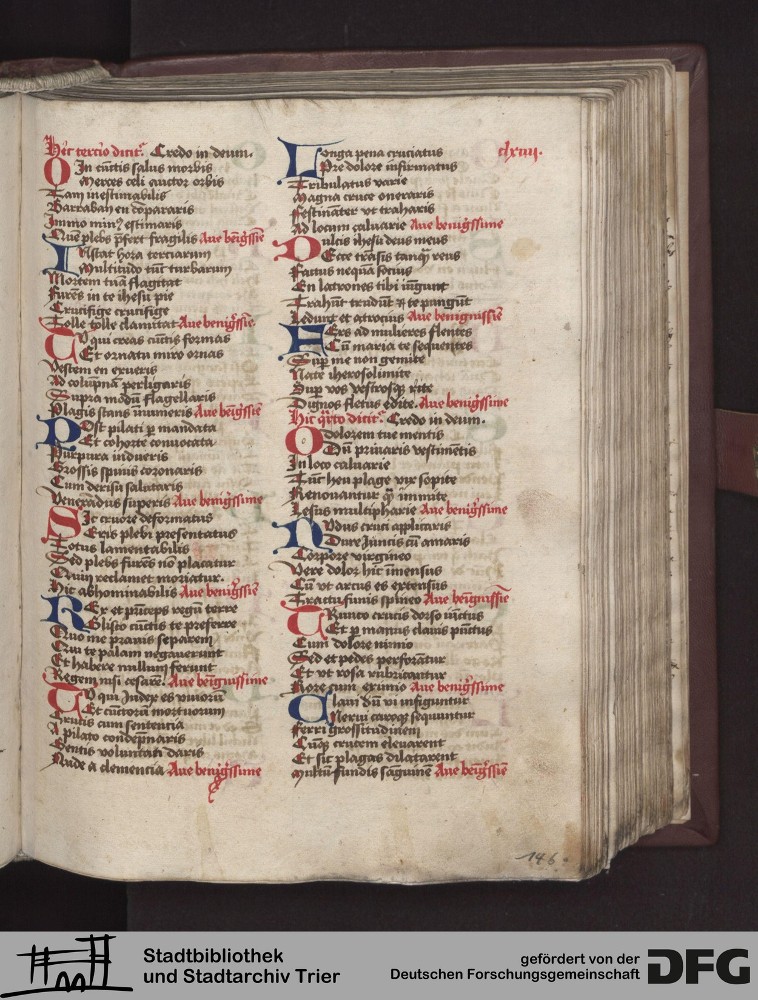 Hic tercio dicitr Credo in deum.
O In cūctis salus morbis
Merces celi auctor orbis
Tam inestimabilis
Barraban en cōpararis
Immo minꝰ estimaris
plebs fragilis Aue
INstat hora terciarum
Multitudo tūc turbarum
Mortem tuā flagitat
Furēs in te ihesu pie
Crucifige crucifige
Tolle tolle clamitat Aue
TV qui creas cūctis formas
Et ornatu miro ornas
Vestem en exueris
Ad colūpnā perligaris
Supra modū flagellaris
Plagis stans īnumeris Aue
POst pilati ꝑ mandata
Et cohorte conuocata
Purpura indueris
Grossis spinis coronaris
Cum derisu salutaris
Venerādus superis Aue
SIc cruore deformatus
Eris plebi presentatus
Totus lamentabilis
Sed plebs furēs nō placatur
Quin reclamet moriatur.
Hic abhominabilis Aue
REx et prīceps regū terre
Glisco cūctis te preferre
Quo me prauis separem
Qui te palam negauerunt
Et habere nullum ferunt
Regem nisi cesarē. Aue
TV qui Iudex es viuorū
Et cūctorū mortuorum
sentencia
A pilato condēpnaris
Gentis voluntati daris
Nude a clemencia Aue
clxiiij.
LOnga pena cruciatus
Pre dolore infirmatus
Tribulatus varie
Magna cruce oneraris
Festināter vt traharis
Ad locum caluarie Aue
DVlcis ihesu deus meus
Ecce trāsis tanquā reus
Factus nequā socius
En latrones tibi iūgunt
Trahūt trudūt ⁊ te pangūt
Ledunt et atrocius Aue
FErs ad mulieres flentes
Cū maria te sequentes
Suꝑ me non gemite
Nate iherosolimite
Suꝑ vos vestrosqꝫ rite
Dignos fletus edite. Aue
Hic qͣrto dicitr Credo in deum.
O dolorem tue mentis
Dū priuaris vestimētis
In loco caluarie
Tūc heu plage vix sopite
Renouantur qͣ immite
Lesus multipharie Aue
NVdus cruci applicaris
Dure iunctis cū amaris
Corpore virgineo
Vere dolor hic īmensus
Cū vt arcus es extensus
Tractu funis spineo Aue
TRunco crucis dorso iūctus
Et ꝑ manus clauis pūctus
Cum dolore nimio
Sed et pedes perforātur
Et vt rosa rubricantur
Rore cum eximio Aue
CLam dū vi infiguntur
Nerui caroqꝫ sequuntur
Ferri grossitudinem
Cūqꝫ crucem eleuarent
Et sic plagas dilatarent
fundis sāguinē Aue
146.
Stadtbibliothek
und Stadtarchiv Trier
gefördert von der
Deutschen Forschungsgemeinschaft
DFG